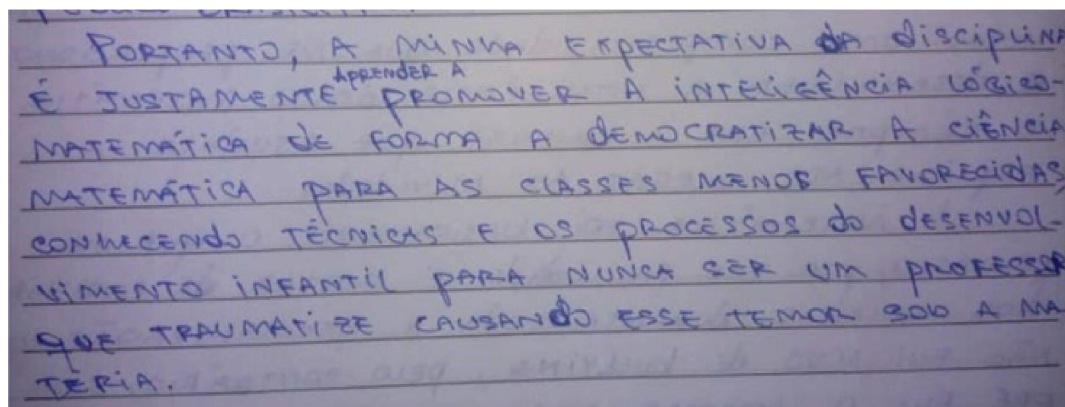 PORTANTO, A MINHA EXPECTATIVA DA DISCIPLINA
APRENDER A
É JUSTAMENTE PROMOVER A INTELIGÊNCIA LÓGICO-
MATEMÁTICA DE FORMA A DEMOCRATIZAR A CIÊNCIA
MATEMÁTICA PARA AS CLASSES MENOS FAVORECIDAS,
CONHECENDO TÉCNICAS E OS PROCESSOS DO DESENVOL-
VIMENTO INFANTIL PARA NUNCA SER UM PROFESSOR
QUE TRAUMATIZE CAUSANDO ESSE TEMOR SOB A MA
TÉRIA.